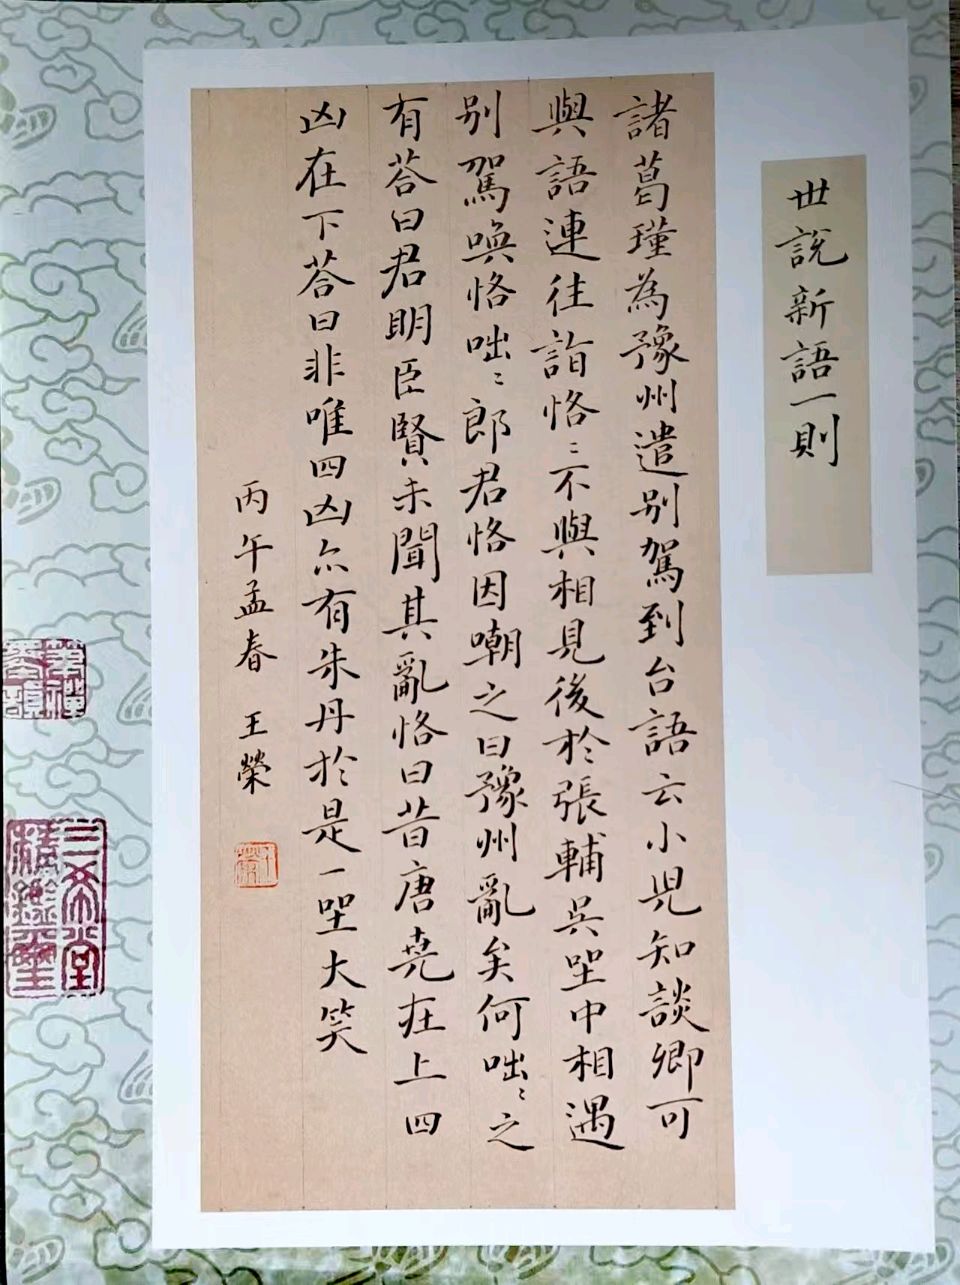 世說新語一則
諸葛瑾為豫州遣别駕到台語云小兒知談卿可
與語連往詣恪〻不與相見後於張輔吳坐中相遇
别駕喚恪咄〻郎君恪因嘲之曰豫州亂矣何咄〻之
有荅曰君明臣賢未聞其亂恪曰昔唐堯在上四
凶在下荅曰非唯四凶亦有朱丹於是一坐大笑
丙午孟春 王榮
三希堂
精鑒璽